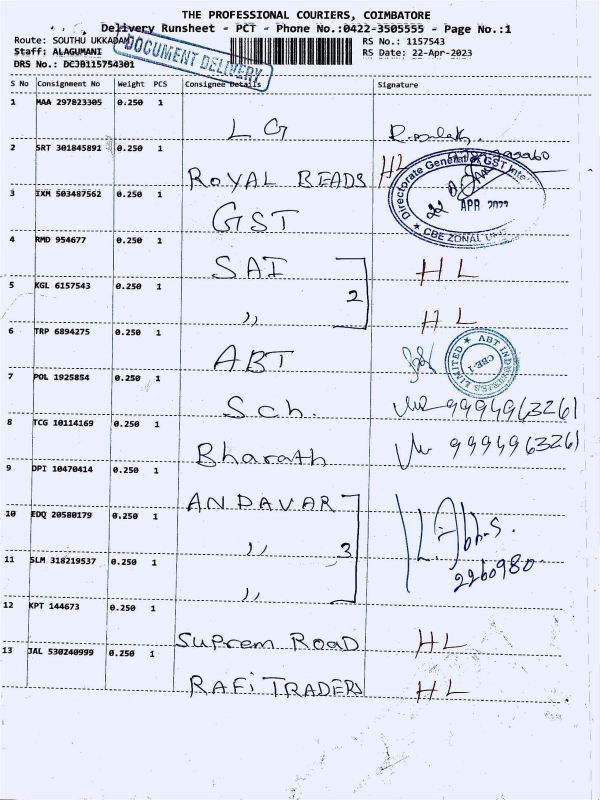 THE PROFESSIONAL COURIERS, COIMBATORE
Delivery Runsheet - PCT - Phone No.:0422-3505555 - Page No.:1
Route: SOUTHU UKKADAM
RS No.: 1157543
Staff: ALAGUMANI
RS Date: 22-Apr-2023
DRS No.: DCJB115754301
DOCUMENT DELIVERY
S No Consignment No Weight PCS Consignee Details Signature
1 MAA 297823305 0.250 1
LG
2 SRT 301845891 0.250 1
ROYAL BEADS HL
Directorate General of GST
22 APR
CBE ZONAL
3 IXM 503487562 0.250 1
GST
4 RMD 954677 0.250 1
SAI HL
5 KGL 6157543 0.250 1
2
,, HL
6 TRP 6894275 0.250 1
ABT
ABT INDUSTRIES LIMITED
CBE-1
7 POL 1925854 0.250 1
Sch. 9994963261
8 TCG 10114169 0.250 1
Bharath 9994963261
9 DPI 10470414 0.250 1
ANDAVAR
10 EDQ 20580179 0.250 1
,, 3
2260980
11 SLM 318219537 0.250 1
,,
12 KPT 144673 0.250 1
Suprem ROAD HL
13 JAL 530240999 0.250 1
RAFI TRADERS HL